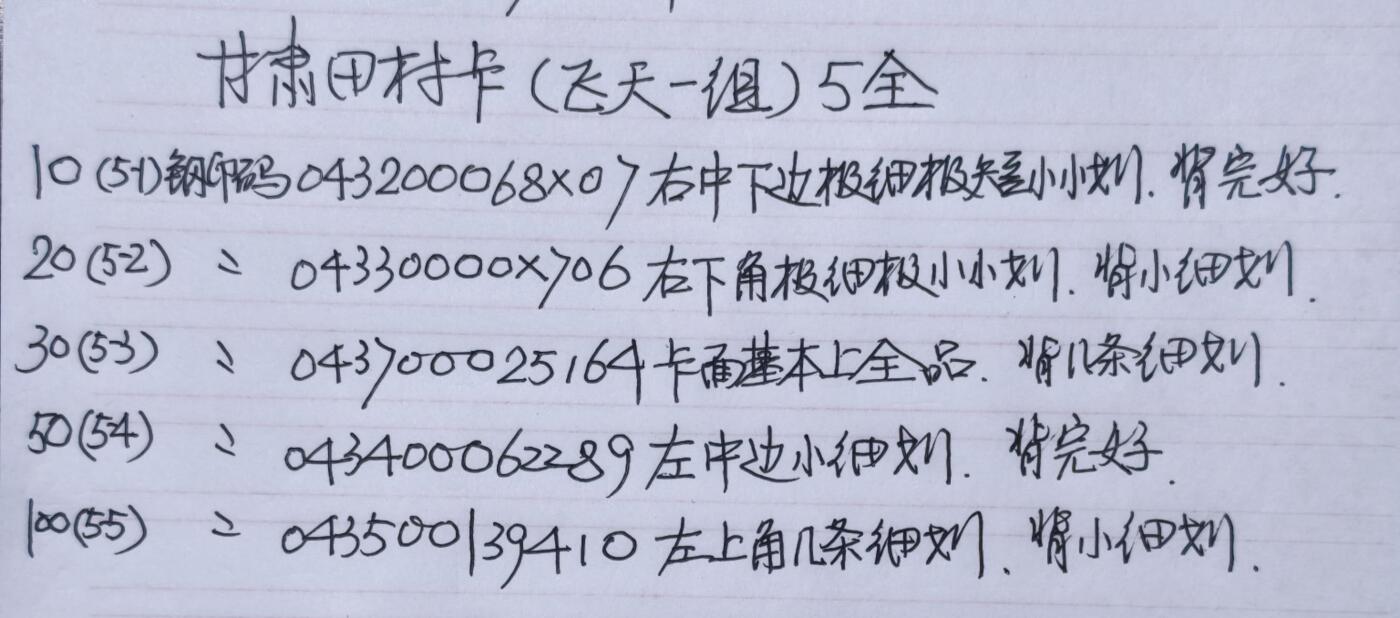 甘肃田村卡(飞天一组)5全
10(5-1)钢印码043200068X07右中下边极细极短小小划.背完好.
20(5-2) 〃 04330000X706右下角极细极小小划.背小细划.
30(5-3) 〃 043700025164卡面基本上全品.背几条细划.
50(5-4) 〃 043400062289左中边小细划.背完好.
100(5-5) 〃 043500139410左上角几条细划.背小细划.